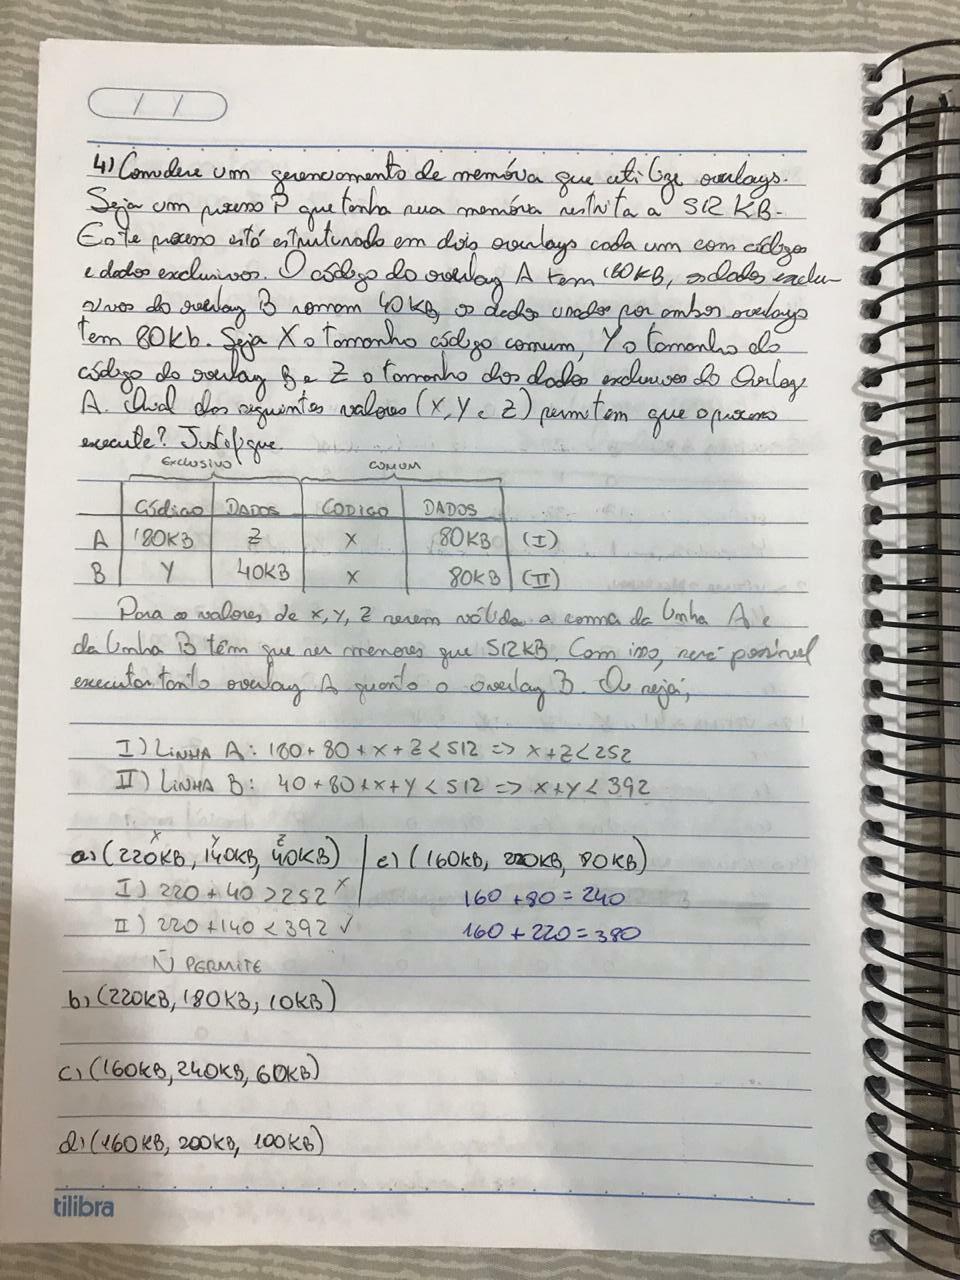 / /
4) Considere um gerenciamento de memória que utilize overlays.
Seja um processo P que tenha sua memória restrita a 512 KB.
Este processo está estruturado em dois overlays cada um com códigos
e dados exclusivos. O código do overlay A tem 180KB, os dados exclu-
sivos do overlay B somam 40KB, os dados usados por ambos overlays
tem 80Kb. Seja X o tamanho código comum, Y o tamanho do
código do overlay B e Z o tamanho dos dados exclusivos do Overlay
A. Qual dos seguintes valores (X, Y e Z) permitem que o processo
execute? Justifique.
EXCLUSIVO COMUM
Código DADOS CODIGO DADOS
A 180KB Z X 80KB (I)
B Y 40KB X 80KB (II)
Para os valores de X, Y, Z serem válidos a soma da linha A e
da linha B têm que ser menores que 512KB. Com isso, será possível
executar tanto overlay A quanto o overlay B. Ou seja;
I) LINHA A: 180 + 80 + X + Z < 512 => X + Z < 252
II) LINHA B: 40 + 80 + X + Y < 512 => X + Y < 392
X Y Z
a) (220KB, 140KB, 40KB) e) (160KB, 220KB, 80KB)
I) 220 + 40 > 252 X 160 + 80 = 240
II) 220 + 140 < 392 ✓ 160 + 220 = 380
Ñ PERMITE
b) (220KB, 180KB, 10KB)
c) (160KB, 240KB, 60KB)
d) (160KB, 200KB, 100KB)
tilibra